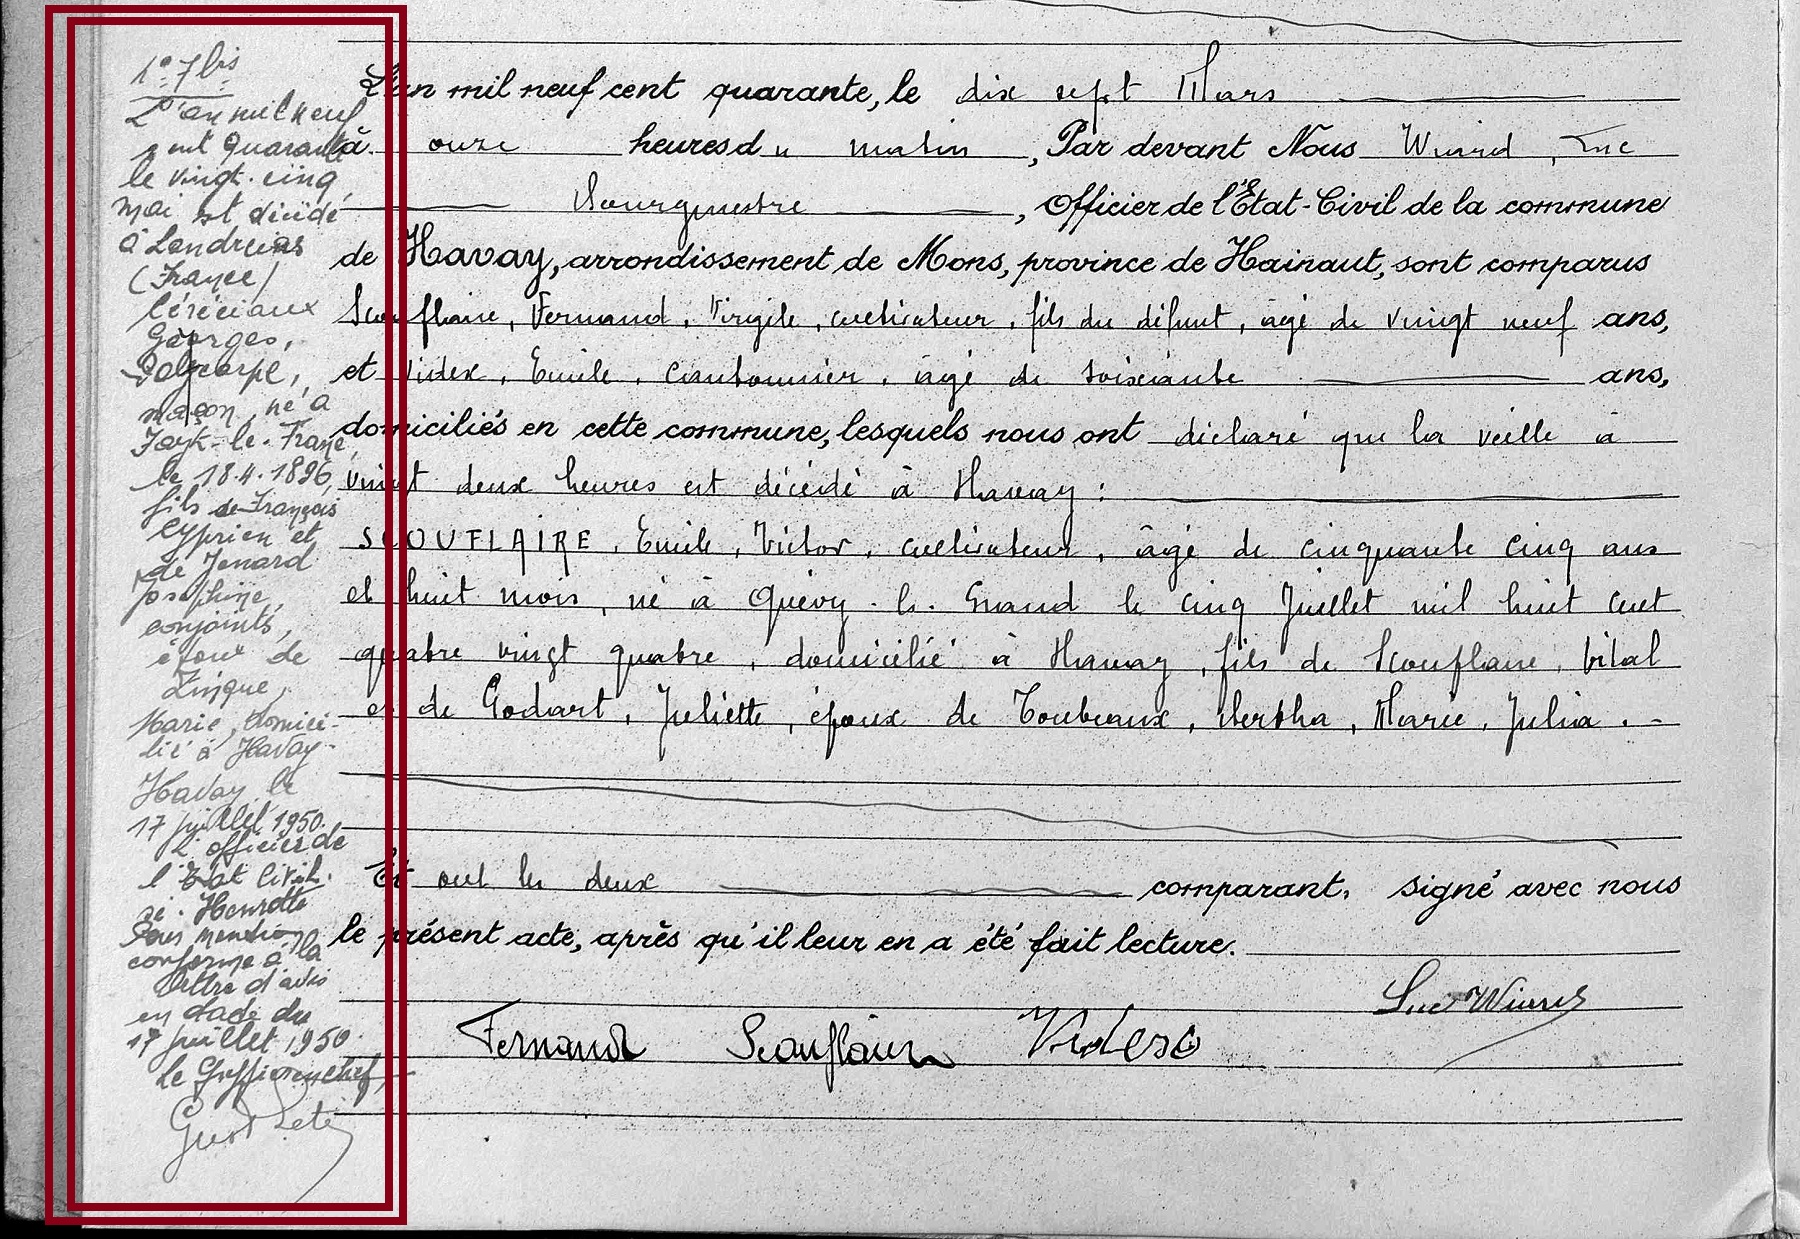 1° 7 bis
L'an mil neuf
cent quarante
le vingt-cinq
mai est décédé
à Landrecies
(France)
Céréciaux
Georges,
Polycarpe,
maçon, né à
le-Franc,
le 18.4.1896,
fils de François
Cyprien et
de Jenard
Joséphine,
conjoints,
époux de
Zinque,
Marie, domici-
lié à Havay.
Havay le
17 juillet 1950.
L'officier de
l'Etat Civil.
si. Henrotte
Pour mention
conforme à la
lettre d'avis
en date du
17 juillet 1950.
Le Greffier en chef,
L'an mil neuf cent quarante, le dix sept Mars
à onze heures du matin, Par devant Nous Wiard, Luc
Bourgmestre, Officier de l'État-Civil de la commune
de Havay, arrondissement de Mons, province de Hainaut, sont comparus
Scouflaire, Fernand, Virgile, cultivateur, fils du défunt, âgé de vingt neuf ans,
et Videx, Emile, cantonnier, âgé de soixante ans,
domiciliés en cette commune, lesquels nous ont déclaré que la veille à
vingt deux heures est décédé à Havay :
SCOUFLAIRE, Emile, Victor, cultivateur, âgé de cinquante cinq ans
et huit mois, né à Quévy-le-Grand le cinq Juillet mil huit cent
quatre vingt quatre, domicilié à Havay, fils de Scouflaire, Vital
et de Godart, Juliette, époux de Toubeaux, Bertha, Marie, Julia.-
Et ont les deux comparant, signé avec nous
le présent acte, après qu'il leur en a été fait lecture.
Luc Wiard
Fernand Scouflaire Videx